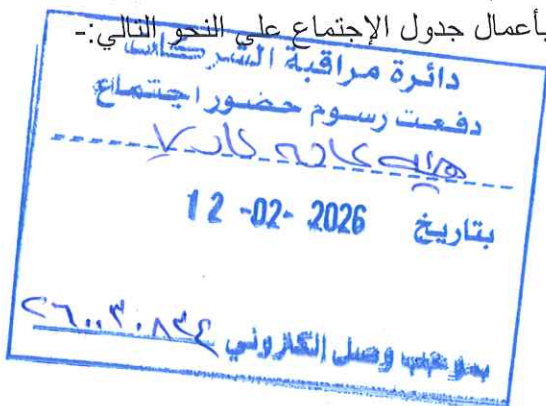 بأعمال جدول الإجتماع على النحو التالي:-
دائرة مراقبة الشركات
دفعت رسوم حضور اجتماع
هيئه عامه عاديه
بتاريخ 2026 -02- 12
بموجب وصل الكتروني ٢٦٠٠٣٠٨٣٤